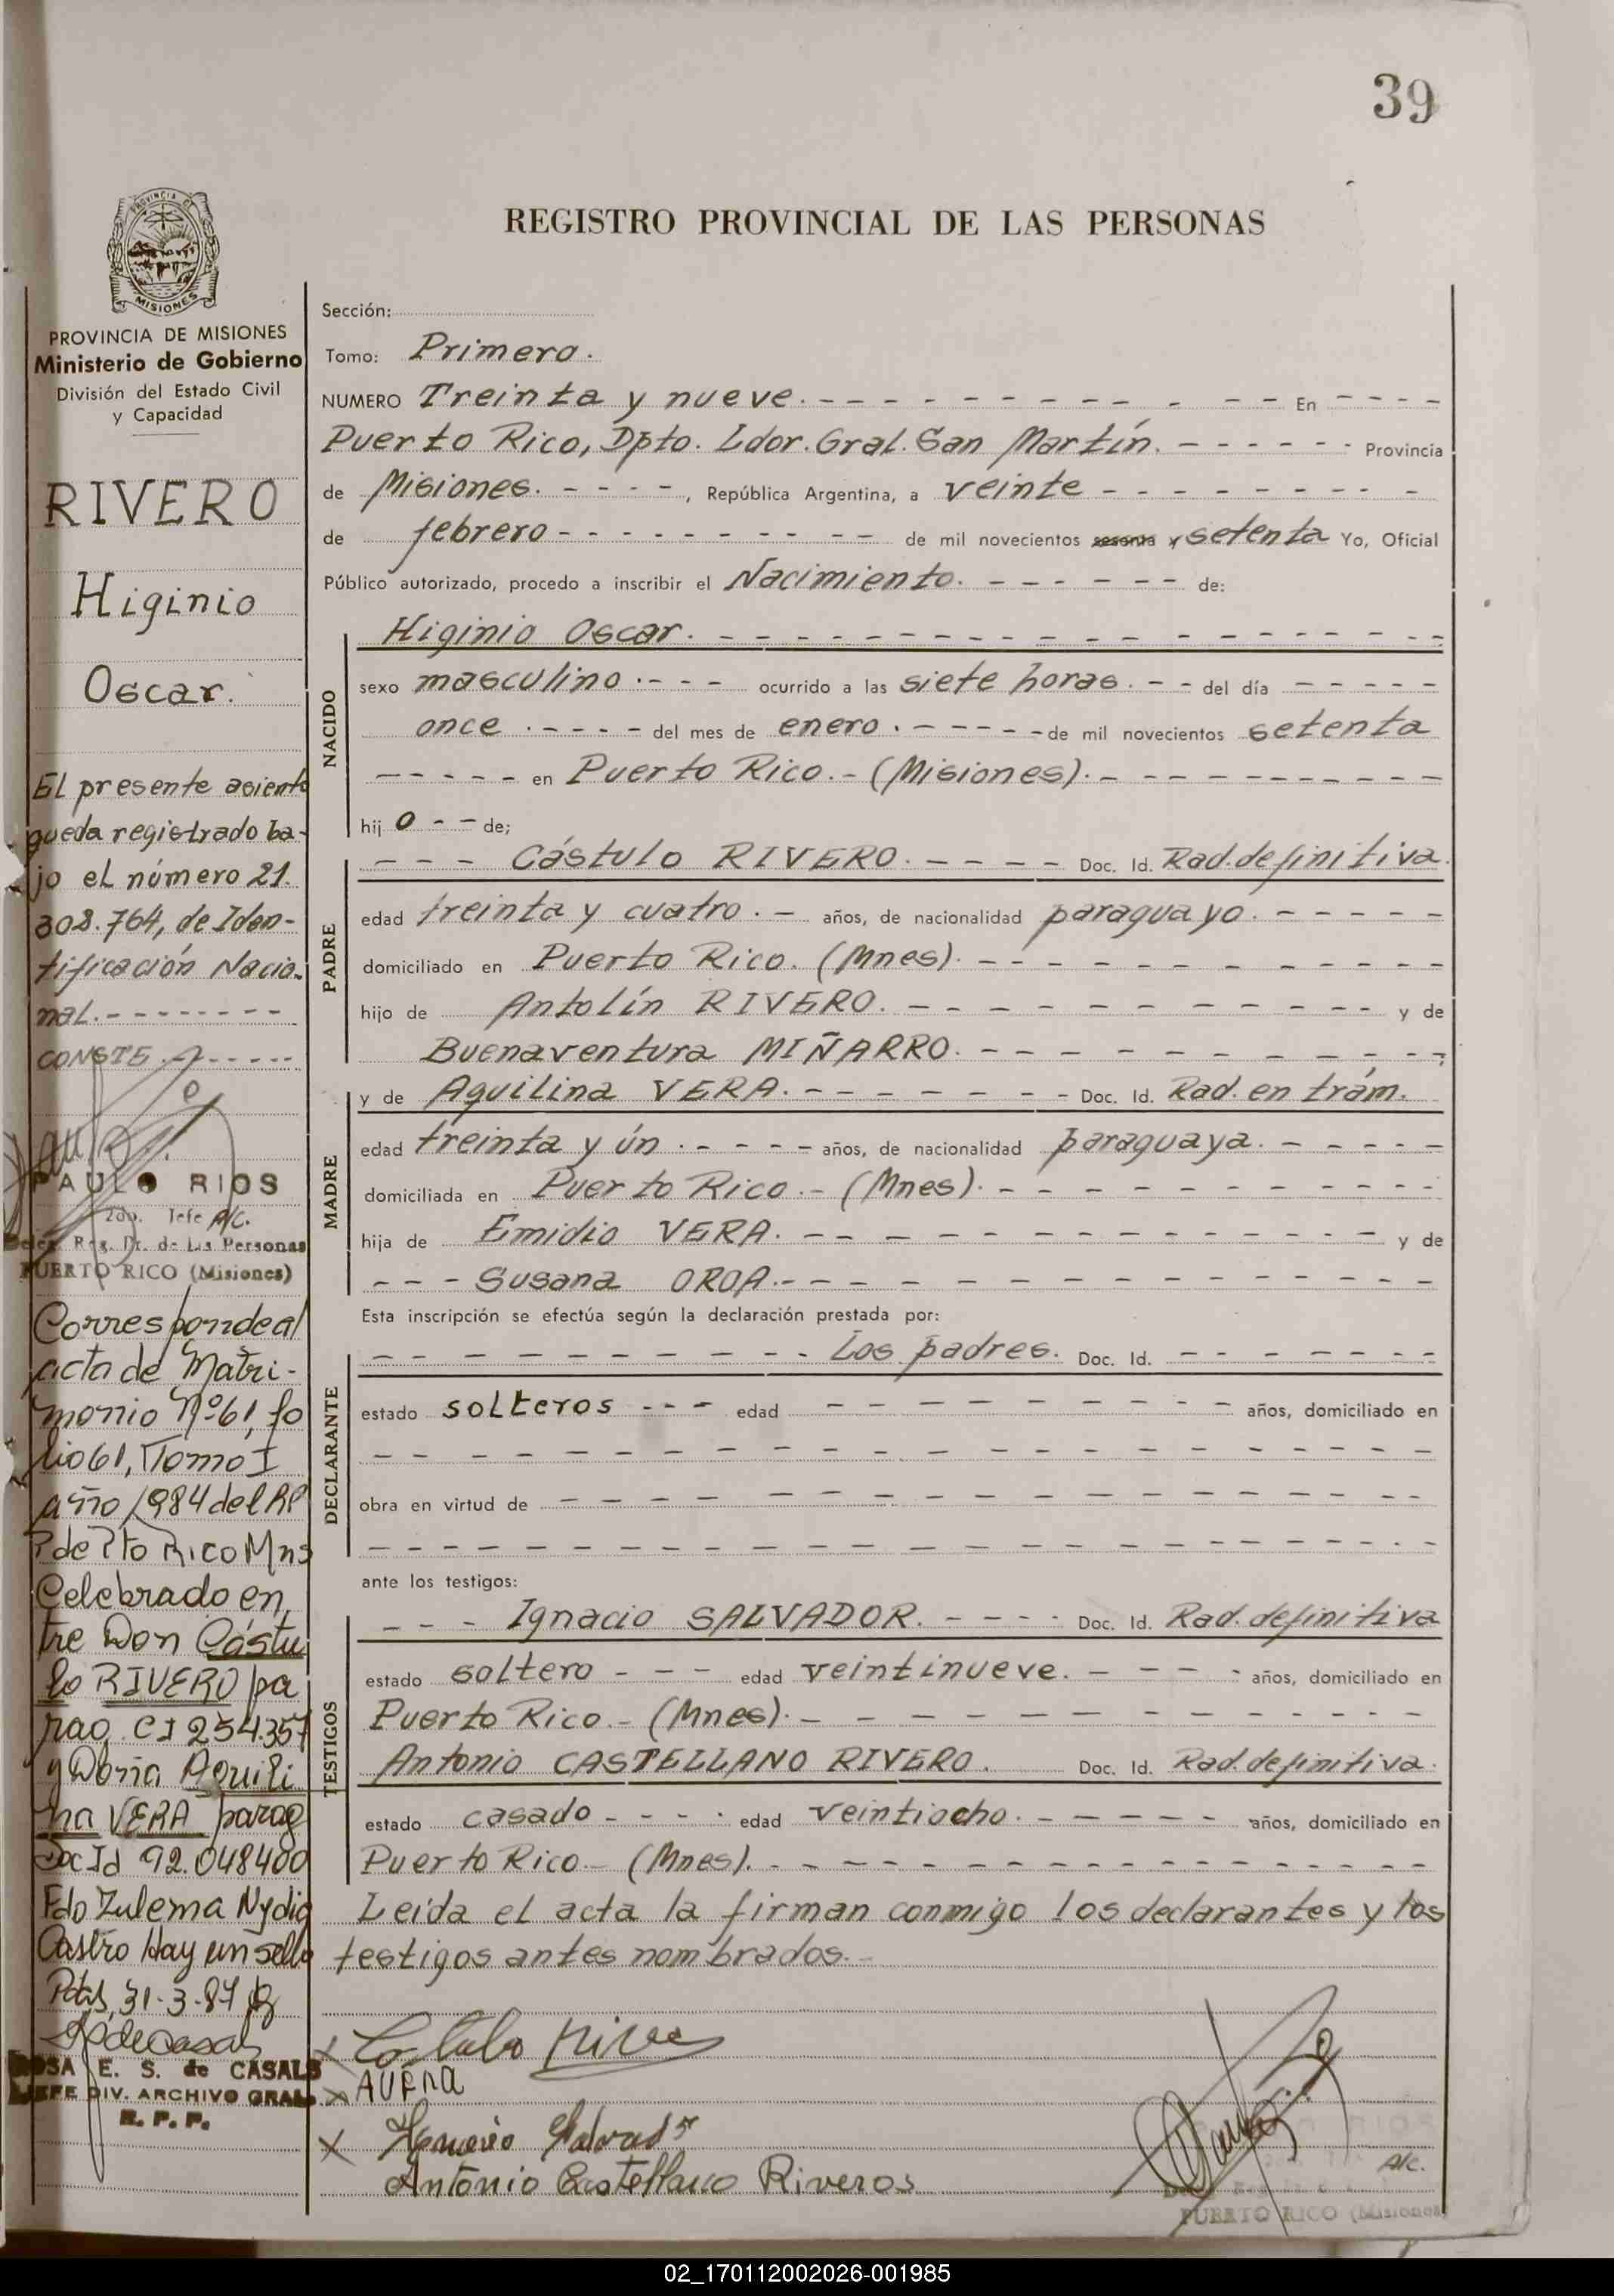 39
REGISTRO PROVINCIAL DE LAS PERSONAS
PROVINCIA DE MISIONES
Ministerio de Gobierno
División del Estado Civil
y Capacidad
RIVERO
Higinio
Oscar.
El presente asiento
queda registrado ba-
jo el número 21.
308.764, de Iden-
tificación Nacio-
nal.--------
CONSTE.-----
PAULO RIOS
2do. Jefe A/C.
Deleg. Reg. Pr. de Las Personas
PUERTO RICO (Misiones)
Corresponde al
acta de Matri-
monio Nº 61, fo
lio 61, Tomo I
año 1984 del RP
P de Pto Rico Mns
Celebrado en
tre Don Cástu
lo RIVERO pa
rag. CI 254.357
y Doña Aquili
na VERA parag
Doc Id 92.048400
Fdo Zulema Nydia
Castro Hay un sello
Pdas, 31-3-87
ROSA E. S. de CASALS
JEFE DIV. ARCHIVO GRAL.
R. P. P.
Sección:
Tomo: Primero.
NUMERO Treinta y nueve.- - - - En - - - -
Puerto Rico, Dpto. Ldor. Gral. San Martín. - - - - Provincia
de Misiones. - - - -, República Argentina, a veinte - - - -
de febrero - - - - de mil novecientos sesenta y setenta Yo, Oficial
Público autorizado, procedo a inscribir el Nacimiento. - - - - de:
NACIDO
Higinio Oscar. - - - -
sexo masculino.- - - ocurrido a las siete horas. - - del día - - - -
once .- - - - del mes de enero.- - - - de mil novecientos setenta
- - - - en Puerto Rico.- (Misiones).- - - -
hij o - - de;
PADRE
- - - Cástulo RIVERO. - - - - Doc. Id. Rad. definitiva.
edad treinta y cuatro. - años, de nacionalidad paraguayo. - - - -
domiciliado en Puerto Rico. (Mnes). - - - -
hijo de Antolín RIVERO. - - - - y de
Buenaventura MIÑARRO. - - - -;
MADRE
y de Aquilina VERA. - - - - Doc. Id. Rad. en trám.
edad treinta y ún. - - - - años, de nacionalidad paraguaya. - - - -
domiciliada en Puerto Rico.- (Mnes). - - - -
hija de Emidio VERA. - - - - y de
- - - Susana OROA.- - - -
Esta inscripción se efectúa según la declaración prestada por:
DECLARANTE
- - - - Los padres. Doc. Id. - - - -
estado solteros - - - edad - - - - años, domiciliado en
- - - -
obra en virtud de - - - -
- - - -
ante los testigos:
TESTIGOS
- - - Ignacio SALVADOR. - - - - Doc. Id. Rad. definitiva
estado soltero - - - edad veintinueve. - - - - años, domiciliado en
Puerto Rico.- (Mnes).- - - -
Antonio CASTELLANO RIVERO. Doc. Id. Rad. definitiva.
estado casado - - - - edad veintiocho. - - - - años, domiciliado en
Puerto Rico.- (Mnes). - - - -
Leída el acta la firman conmigo los declarantes y los
testigos antes nombrados.-
X Castulo Rive
X AVERA
X Ignacio Salvador
Antonio Castellano Riveros
A/c.
PUERTO RICO (Misiones)
02_170112002026-001985